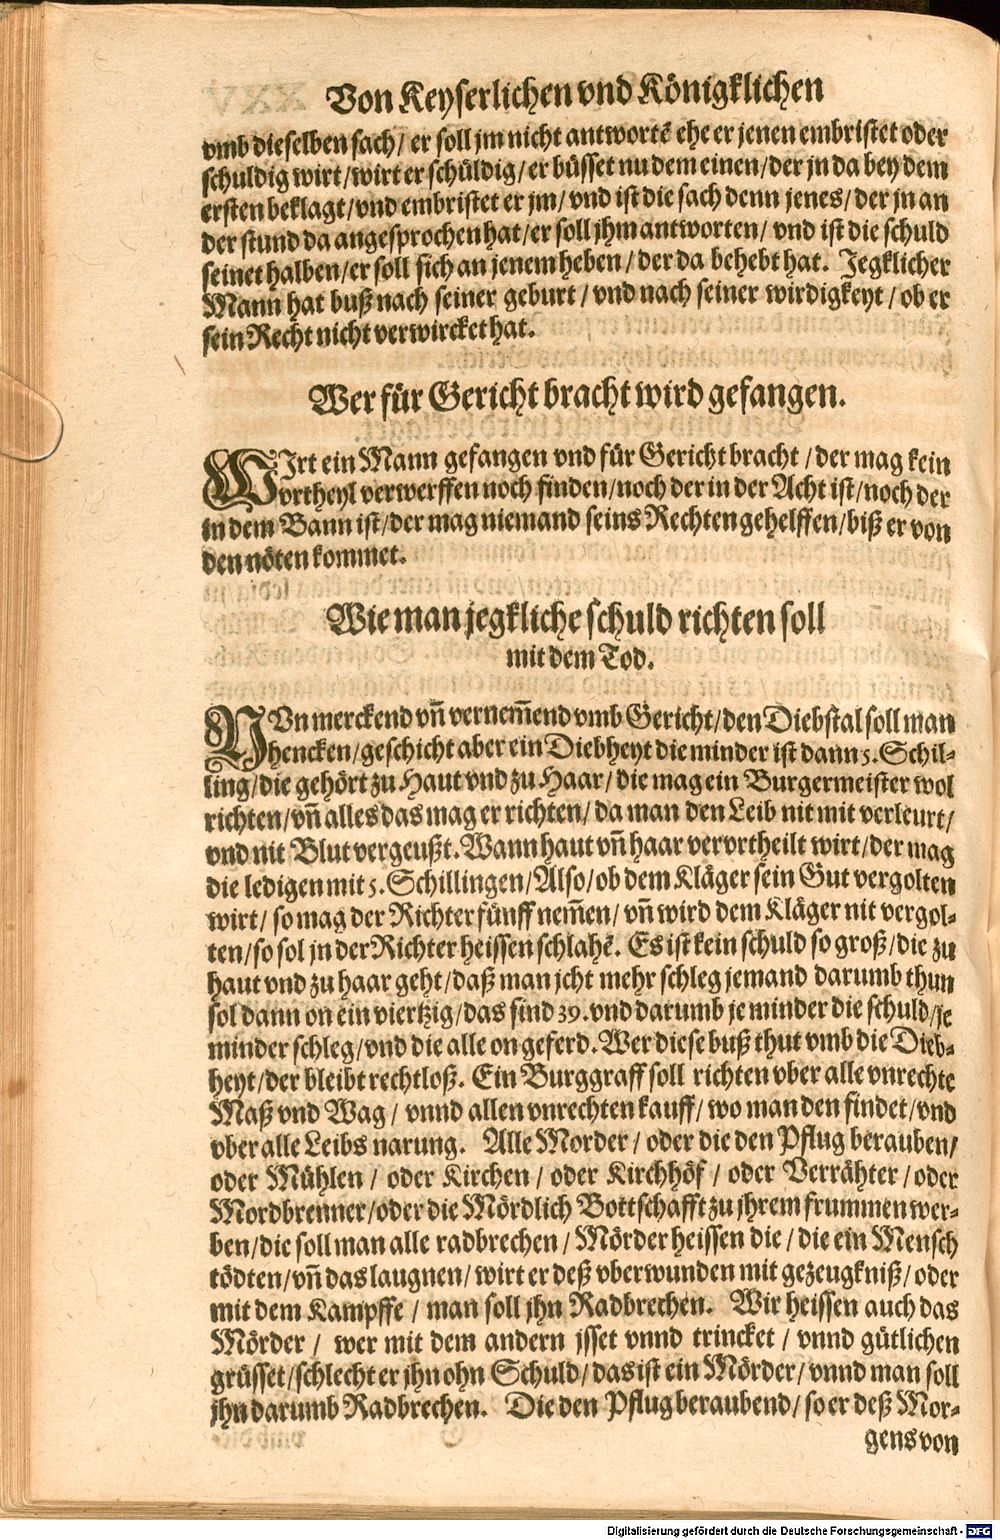 Von Keyserlichen vnd Königklichen
vmb dieselben sach/ er soll jm nicht antwortē ehe er jenen embristet oder
schuldig wirt/wirt er schüldig/er büsset nu dem einen/der jn da bey dem
ersten beklagt/vnd embristet er jm/vnd ist die sach denn jenes/der jn an
der stund da angesprochen hat/er soll jhm antworten/ vnd ist die schuld
seinet halben/er soll sich an jenem heben/der da behebt hat. Jegklicher
Mann hat buß nach seiner geburt/vnd nach seiner wirdigkeyt/ob er
sein Recht nicht verwircket hat.
Wer für Gericht bracht wird gefangen.
WJrt ein Mann gefangen vnd für Gericht bracht/der mag kein
vrtheyl verwerffen noch finden/noch der in der Acht ist/noch der
in dem Bann ist/der mag niemand seins Rechten gehelffen/biß er von
den nöten kommet.
Wie man jegkliche schuld richten soll
mit dem Tod.
NVn merckend vñ vernem̄end vmb Gericht/den Diebstal soll man
hencken/geschicht aber ein Diebheyt die minder ist dann 5. Schil-
ling/die gehört zu Haut vnd zu Haar/die mag ein Burgermeister wol
richten/vñ alles das mag er richten/da man den Leib nit mit verleurt/
vnd nit Blut vergeußt. Wann haut vñ haar vervrtheilt wirt/der mag
die ledigen mit 5. Schillingen/Also/ob dem Kläger sein Gut vergolten
wirt/so mag der Richter fünff nem̄en/vñ wird dem Kläger nit vergol-
ten/so sol jn der Richter heissen schlahē. Es ist kein schuld so groß/die zu
haut vnd zu haar geht/daß man jcht mehr schleg jemand darumb thun
sol dann on ein viertzig/das sind 39. vnd darumb je minder die schuld/je
minder schleg/vnd die alle on geferd. Wer diese buß thut vmb die Dieb-
heyt/der bleibt rechtloß. Ein Burggraff soll richten vber alle vnrechte
Maß vnd Wag/ vnnd allen vnrechten kauff/wo man den findet/vnd
vber alle Leibs narung. Alle Morder/oder die den Pflug berauben/
oder Mühlen/oder Kirchen/oder Kirchhöf/oder Verrähter/oder
Mordbrenner/oder die Mördlich Bottschafft zu jhrem frummen wer-
ben/die soll man alle radbrechen/Mörder heissen die/die ein Mensch
tödten/vñ das laugnen/wirt er deß vberwunden mit gezeugkniß/oder
mit dem Kampffe/man soll jhn Radbrechen. Wir heissen auch das
Mörder/ wer mit dem andern jsset vnnd trincket/vnnd gütlichen
grüsset/schlecht er jhn ohn Schuld/das ist ein Mörder/vnnd man soll
jhn darumb Radbrechen. Die den Pflug beraubend/so er deß Mor-
gens von
Digitalisierung gefördert durch die Deutsche Forschungsgemeinschaft - DFG